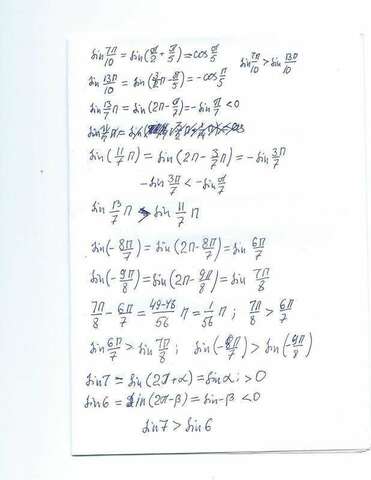 sin 7π/10 = sin(π/2 + π/5) = cos π/5
sin 7π/10 > sin 13π/10
sin 13π/10 = sin(3/2 π - π/5) = -cos π/5
sin 13/7 π = sin(2π - π/7) = -sin π/7 < 0
sin(11/7 π) = sin(2π - 3/7 π) = -sin 3π/7
-sin 3π/7 < -sin π/7
sin 13/7 π > sin 11/7 π
sin(-8π/7) = sin(2π - 8π/7) = sin 6π/7
sin(-9π/8) = sin(2π - 9π/8) = sin 7π/8
7π/8 - 6π/7 = (49-48)/56 π = 1/56 π ; 7π/8 > 6π/7
sin 6π/7 > sin 7π/8 ; sin(-8π/7) > sin(-9π/8)
sin 7 = sin(2π+α) = sin α ; > 0
sin 6 = sin(2π-β) = sin-β < 0
sin 7 > sin 6